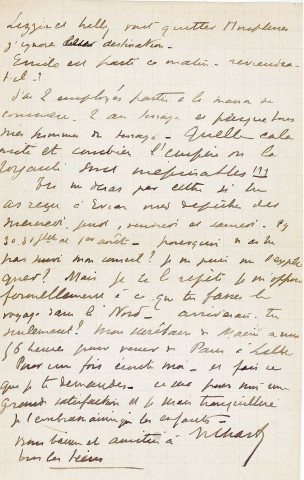 Lizzie et Nelly vont quitter
j'ignore leur destination.
Emile est parti ce matin. reviendra-
t-il?
J'ai 2 employés partis à la maison de
commerce. 2 au tissage et presque tous
mes hommes de tissage. Quelle cala
mité et combien l'empire ou la
royauté sont méprisables !!!
Tu ne diras pas cette si tu
as reçu à mes dépêches des
mercredi, jeudi vendredi et samedi.
30. 31 et 1er août. pourquoi n'as tu
pas suivi mon conseil? Je ne puis me l'expli
quer? Mais je te le répète je m'oppose
formellement à ce que tu fasses le
voyage dans le Nord. arriverais-tu
seulement? Mon secrétaire de Mairie a mis
56 heures pour venir de Paris à Lille
Pour une fois écoute moi. et fais ce
que je te demande. ce sera pour moi une
grande satisfaction et je serai tranquillisé
Je t'embrasse ainsi que les enfants.
Bons baisers et amitiés à
tous les tiens